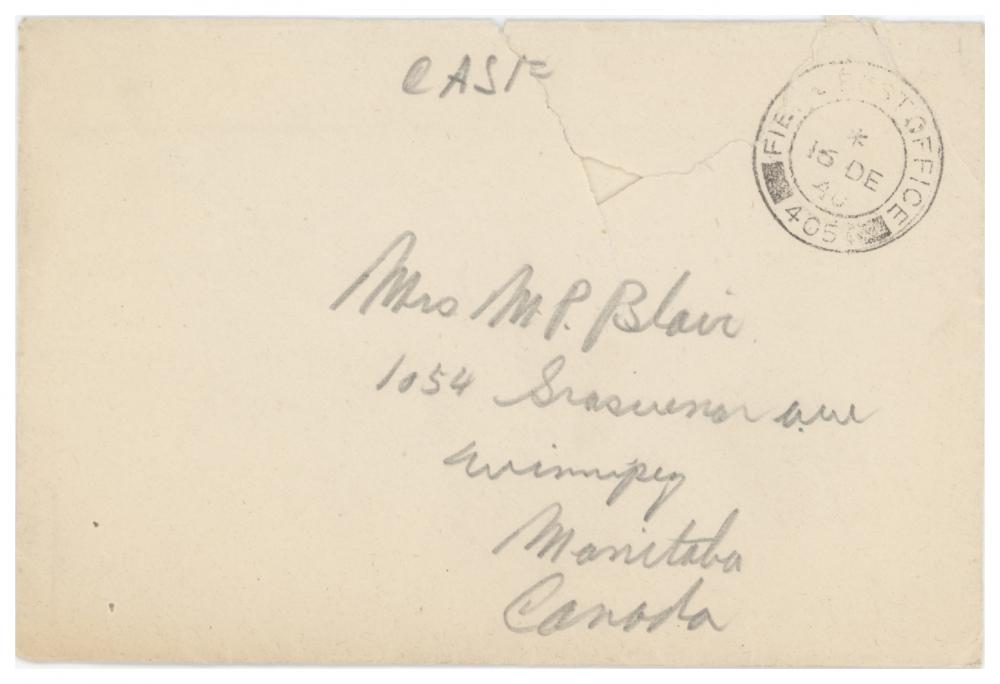 CASF
FIELD POST OFFICE
*
15 DE
40
405
Mrs M.P. Blair
1054 Grosvenor ave
Winnipeg
Manitoba
Canada